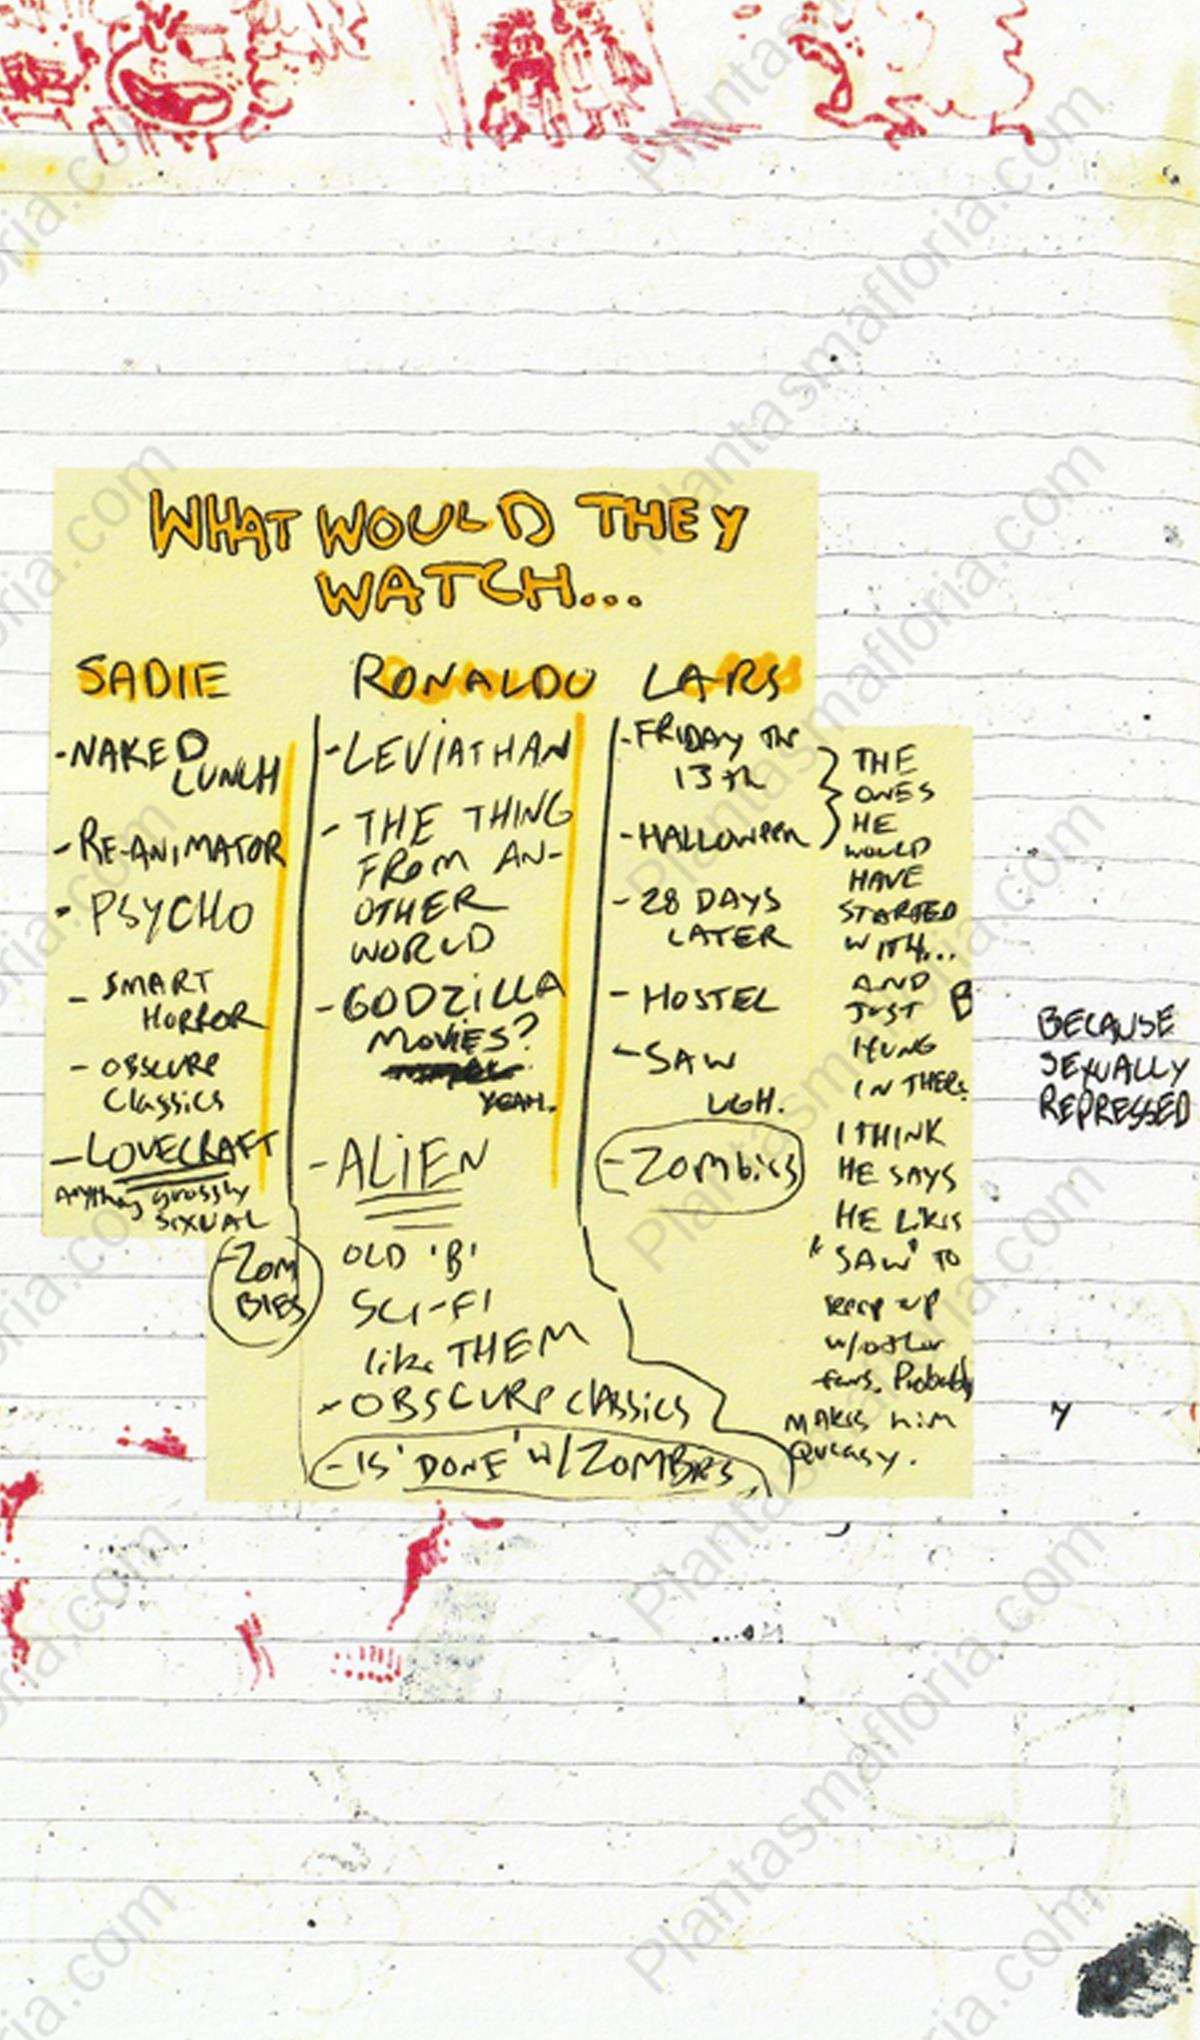 WHAT WOULD THEY
WATCH...
SADIE
-NAKED
LUNCH
-RE-ANIMATOR
- PSYCHO
- SMART
HORROR
- OBSCURE
Classics
-LOVECRAFT
Anything grossly
SEXUAL
-ZOM
BIES
RONALDO
-LEVIATHAN
- THE THING
FROM AN-
OTHER
WORLD
-GODZILLA
MOVIES?
YEAH.
-ALIEN
OLD 'B'
SCI-FI
like THEM
-OBSCURE classics
-IS 'DONE' W/ZOMBIES
LARS
-FRIDAY THE
13th
-HALLOWEEN
-28 DAYS
LATER
-HOSTEL
-SAW
UGH.
-Zombies
THE
ONES
HE
WOULD
HAVE
STARTED
WITH...
AND
JUST
HUNG
IN THERE
I THINK
HE SAYS
HE LIKES
"SAW" TO
keep up
w/other
fans. Probably
MAKES him
QUEASY.
B
BECAUSE
SEXUALLY
REPRESSED
y
Plantasmafloria.com